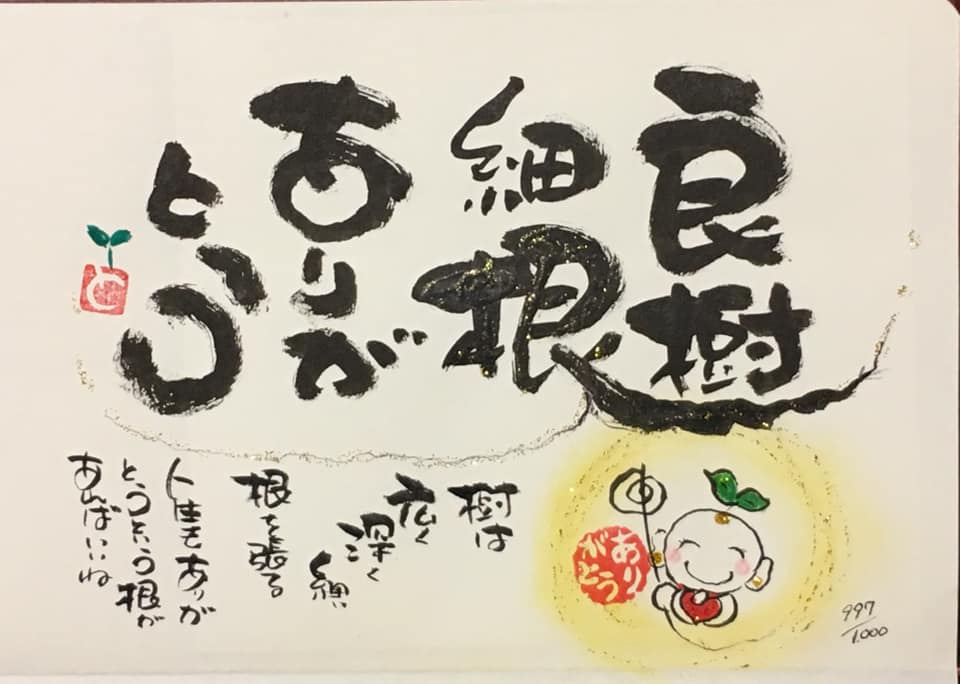 良樹
細根
ありが
とう
と
樹は
広く
深く
細
根を張る
人生もありが
とうという根が
あんばいいね
あり
がとう
997/1.000